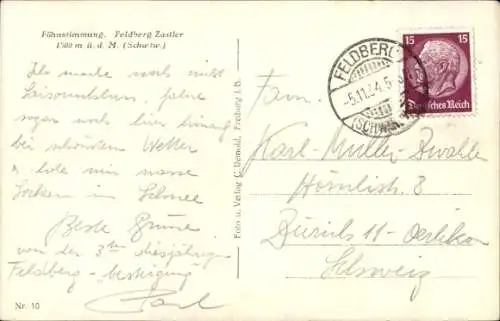 Föhnstimmung. Feldberg Zastler
1500 m ü. d. M. (Schwrw.)
Ich mache noch nicht
Saisonschluss, fahre
sogar noch hier hinauf
bei schönstem Wetter
u. hole mir nasse
Socken im Schnee
Beste Grüsse
von der 3ten diesjährigen
Feldberg-besteigung
Karl
Nr. 10
Foto u. Verlag C. Bernold, Freiburg i. B.
FELDBERG
-5.11.34.5
(SCHWARZW
15 15
Deutsches Reich
Fam.
Karl Müller-Dwahle
Hörnlistr. 8
Zürich 11 - Oerlikon
Schweiz